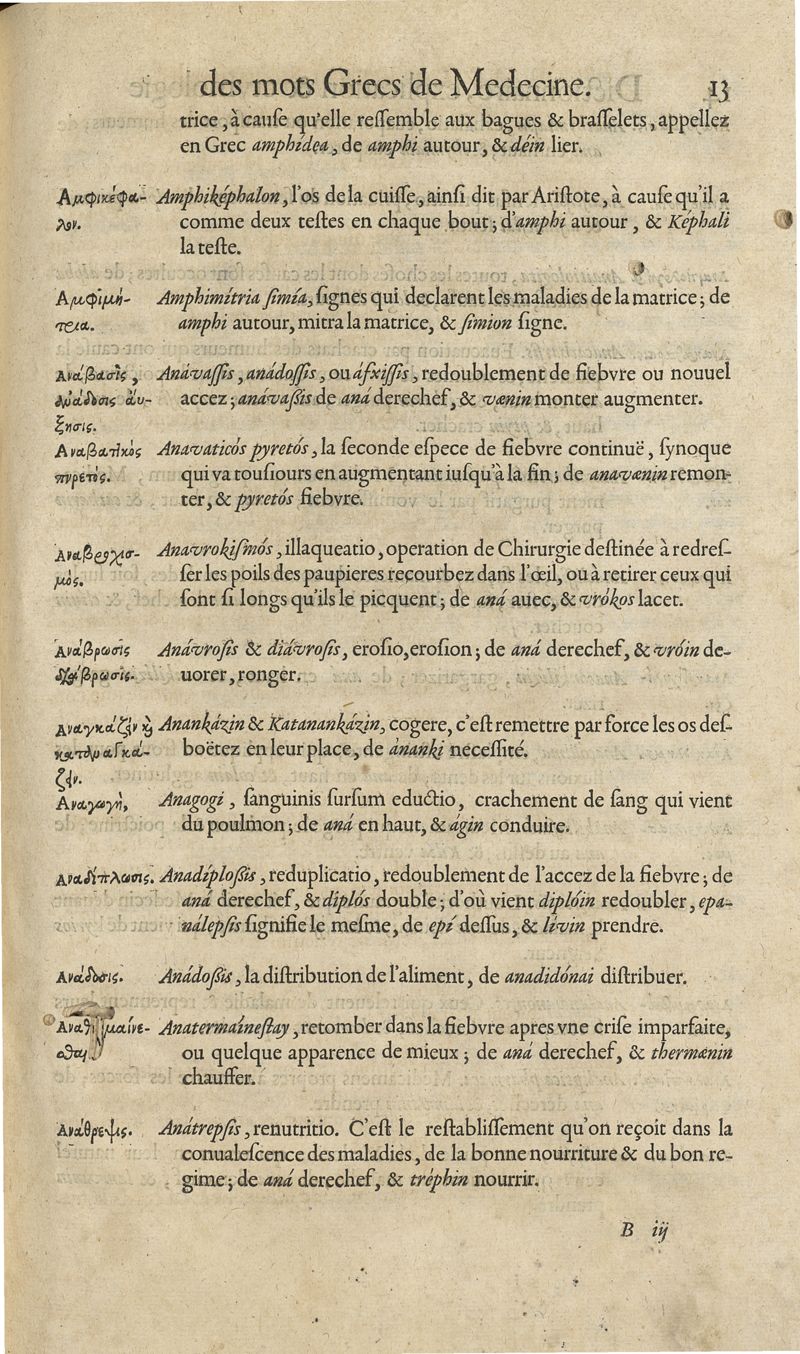 des mots Grecs de Medecine. 13
trice, à cauſe qu'elle reſſemble aux bagues & braſſelets, appellez
en Grec amphídea, de amphi autour, & déin lier.
Αμφικέφα- Amphiképhalon, l'os de la cuiſſe, ainſi dit par Ariſtote, à cauſe qu'il a
λον. comme deux teſtes en chaque bout; d'amphi autour, & Képhali
la teſte.
Αμφιμή- Amphimítria ſimía, ſignes qui declarent les maladies de la matrice; de
τρια. amphi autour, mitra la matrice, & ſimion ſigne.
Ανάβασις, Anávaſſis, anádoſſis, ou áfxiſſis, redoublement de fiebvre ou nouuel
ανάδοσις αυ- accez; anávaſsis de aná derechef, & vænin monter augmenter.
ξησις.
Αναβατικὸς Anavaticós pyretós, la ſeconde eſpece de fiebvre continuë, ſynoque
πυρετὸς. qui va touſiours en augmentant iuſqu'à la fin; de anavænin remon-
ter, & pyretós fiebvre.
Αναβροχισ- Anavrokiſmós, illaqueatio, operation de Chirurgie deſtinée à redreſ-
μὸς. ſer les poils des paupieres reçourbez dans l'œil, ou à retirer ceux qui
ſont ſi longs qu'ils le picquent; de aná auec, & vrókos lacet.
Ανάβρωσις Anávroſis & diávroſis, eroſio, eroſion; de aná derechef, & vróin de-
διάβρωσις. uorer, ronger.
Αναγκάζειν κὶ Anankázin & Katanankázin, cogere, c'eſt remettre par force les os deſ-
καταναγκά- boëtez en leur place, de ànanki neceſſité.
ζειν.
Αναγωγὴ, Anagogi, ſanguinis ſurſum eductio, crachement de ſang qui vient
du poulmon; de aná en haut, & ágin conduire.
Αναδίπλωσις. Anadíploſſis, reduplicatio, redoublement de l'accez de la fiebvre; de
aná derechef, & diplós double; d'où vient diplóin redoubler, epa-
nálepſis ſignifie le meſme, de epí deſſus, & lívin prendre.
Ανάδοσις. Anádoſsis, la diſtribution de l'aliment, de anadidónai diſtribuer.
Αναθερμαίνε- Anatermaíneſtay, retomber dans la fiebvre apres vne criſe imparfaite,
σθαι ou quelque apparence de mieux; de aná derechef, & thermænin
chauffer.
Ανάθρεψις. Anátrepſis, renutritio. C'eſt le reſtabliſſement qu'on reçoit dans la
conualeſcence des maladies, de la bonne nourriture & du bon re-
gime; de aná derechef, & tréphin nourrir.
B iij